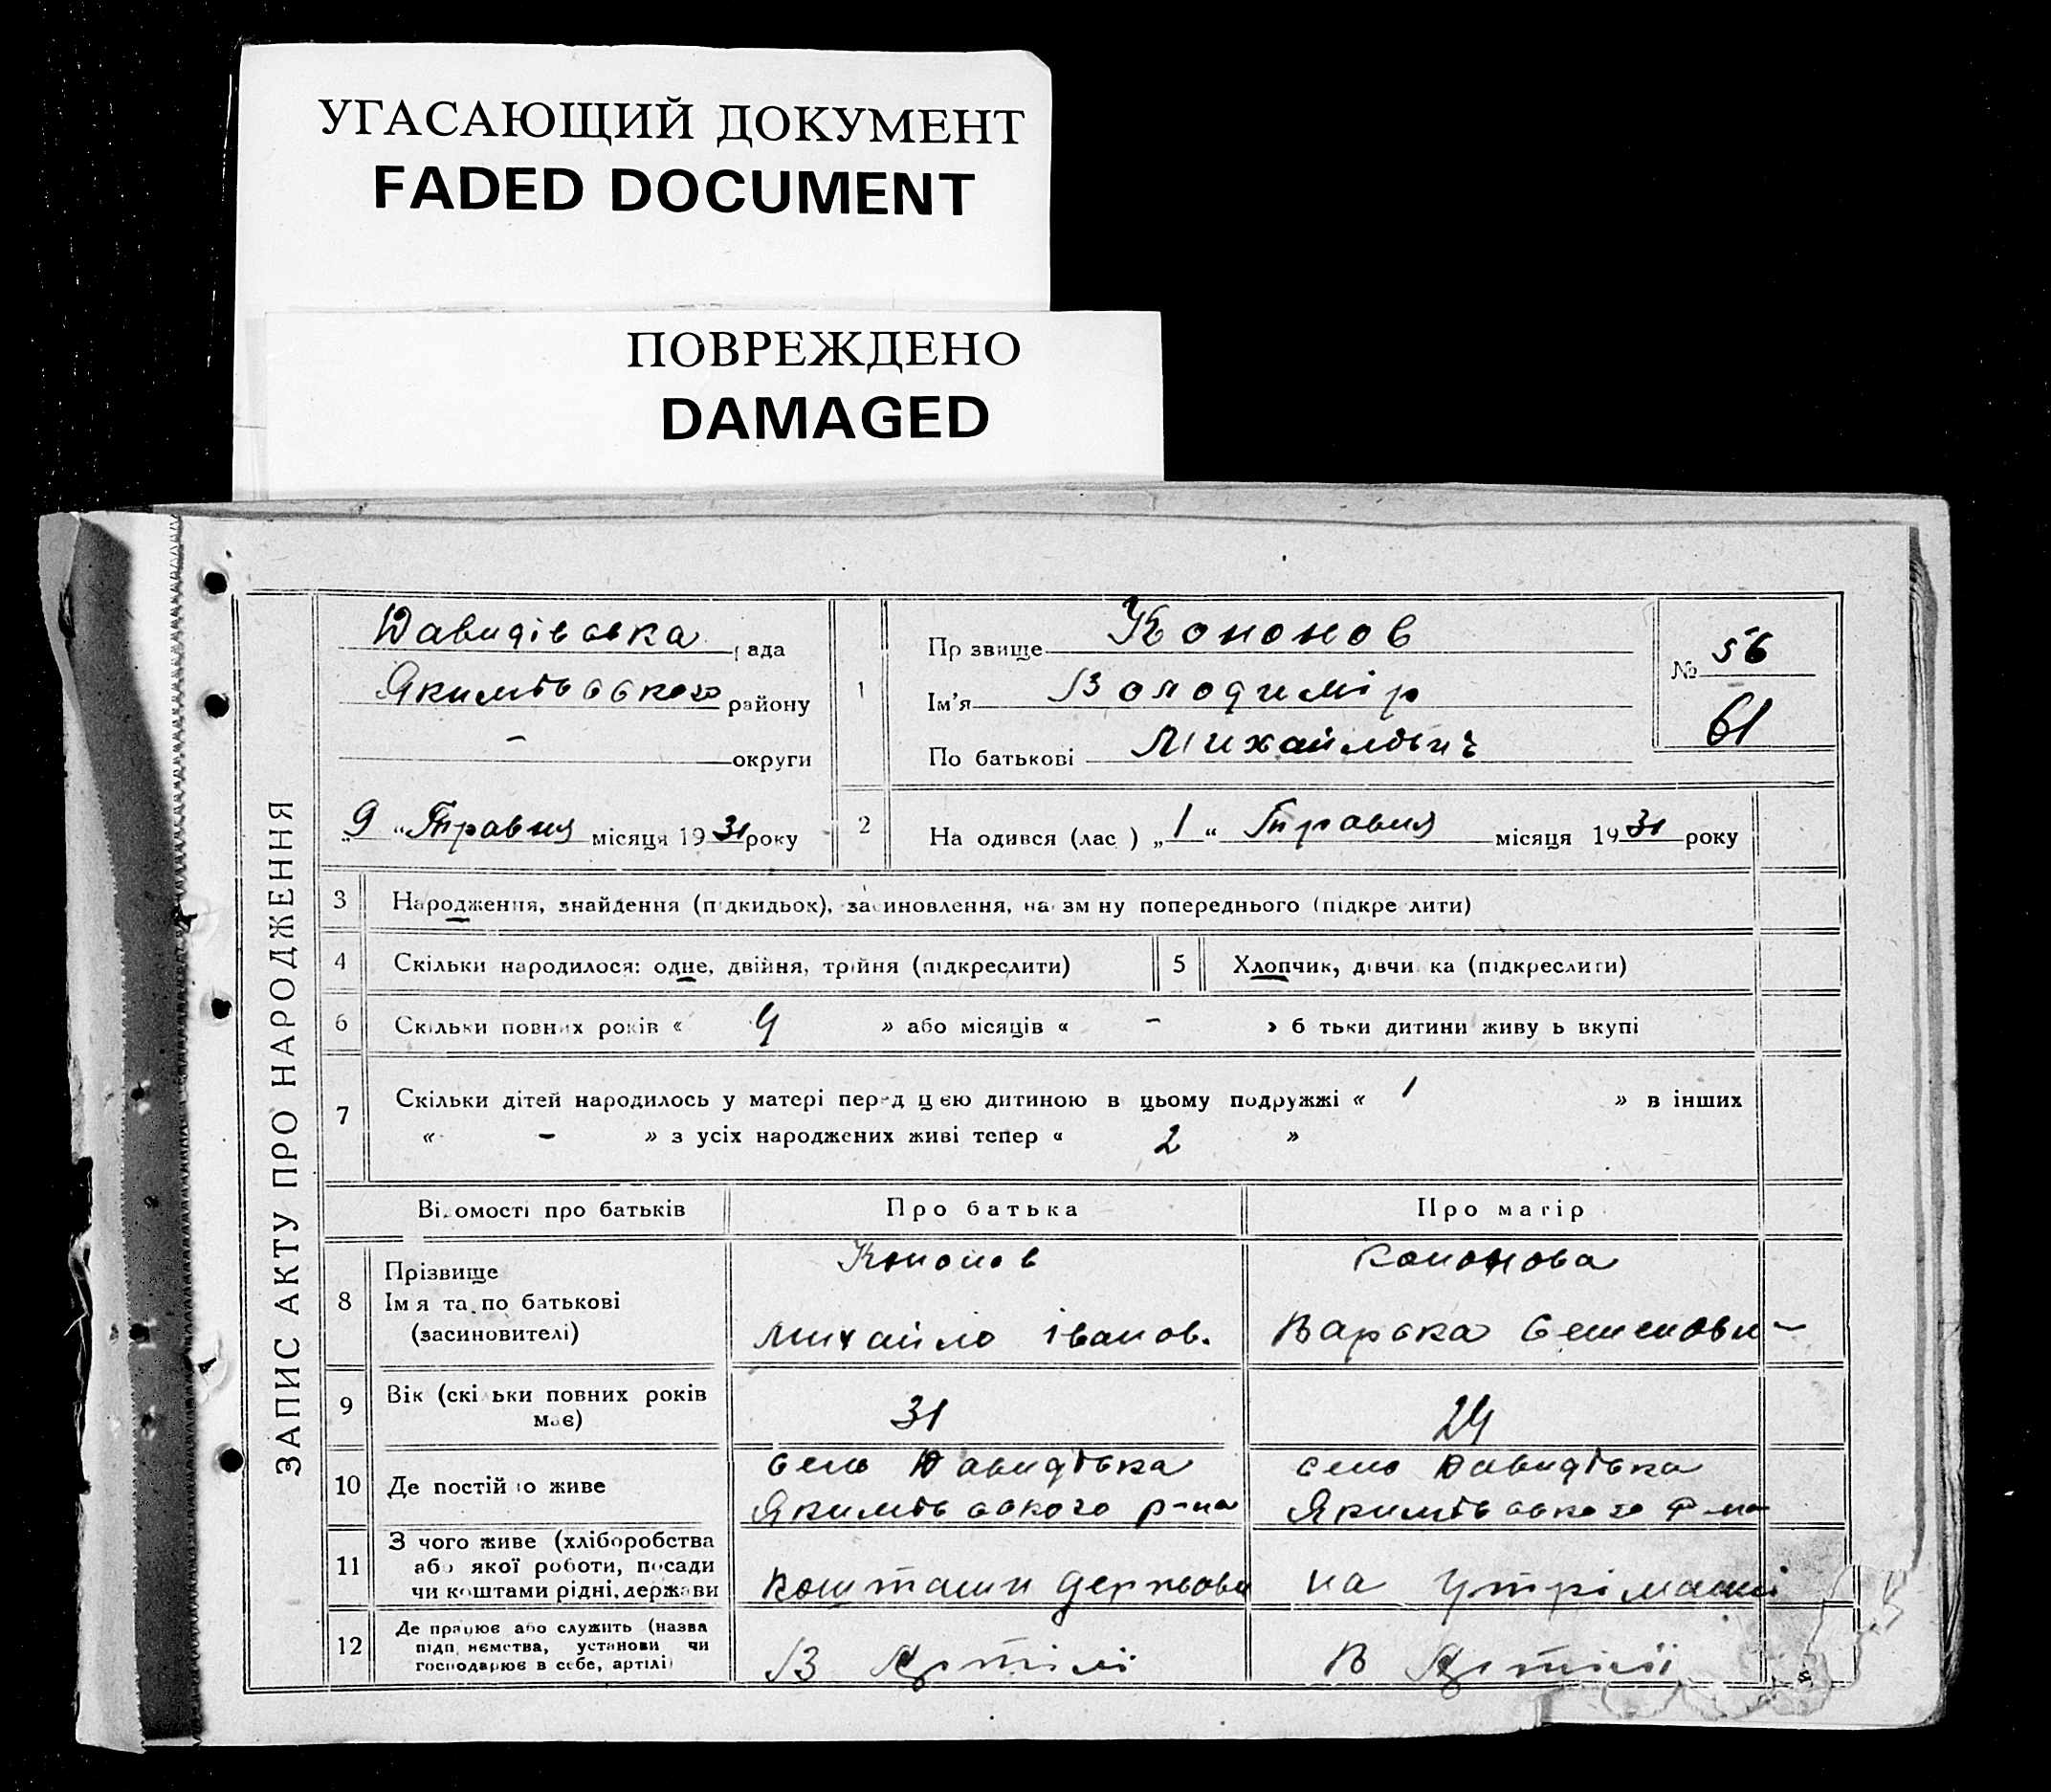 УГАСАЮЩИЙ ДОКУМЕНТ
FADED DOCUMENT
ПОВРЕЖДЕНО
DAMAGED
ЗАПИС АКТУ ПРО НАРОДЖЕННЯ
Давидівська рада
Якимівського району
- округи
„9“ Травня місяця 1931 року
1
Пр звище Кононов
Ім'я Володимір
По батькові Михайлович
№ 56
61
2 На одився (лас ) „1“ Травня місяця 1931 року
3 Народження, знайдення (підкидьок), засиновлення, на зм ну попереднього (підкре лити)
4 Скільки народилося: одне, двійня, трійня (підкреслити) 5 Хлопчик, дівчи ка (підкреслити)
6 Скільки повних років « 4 » або місяців « - » б тьки дитини живу ь вкупі
7 Скільки дітей народилось у матері перед цією дитиною в цьому подружжі « 1 » в інших
« - » з усіх народжених живі тепер « 2 »
Відомості про батьків Про батька Про матір
8 Прізвище Кононов Кононова
Ім я та по батькові
(засиновителі) Михайло Іванов. Варвка Семеновн
9 Вік (скі ьки повних років має) 31 24
10 Де постій о живе село Давидівка село Давидівка
Якимівського р-на Якимівського р-на
11 З чого живе (хліборобства
або якої роботи, посади
чи коштами рідні, держави коштами на утріманні
12 Де працює або служить (назва
підп иємства, установи чи
господарює в себе, артілі) В Артілі В Артілі